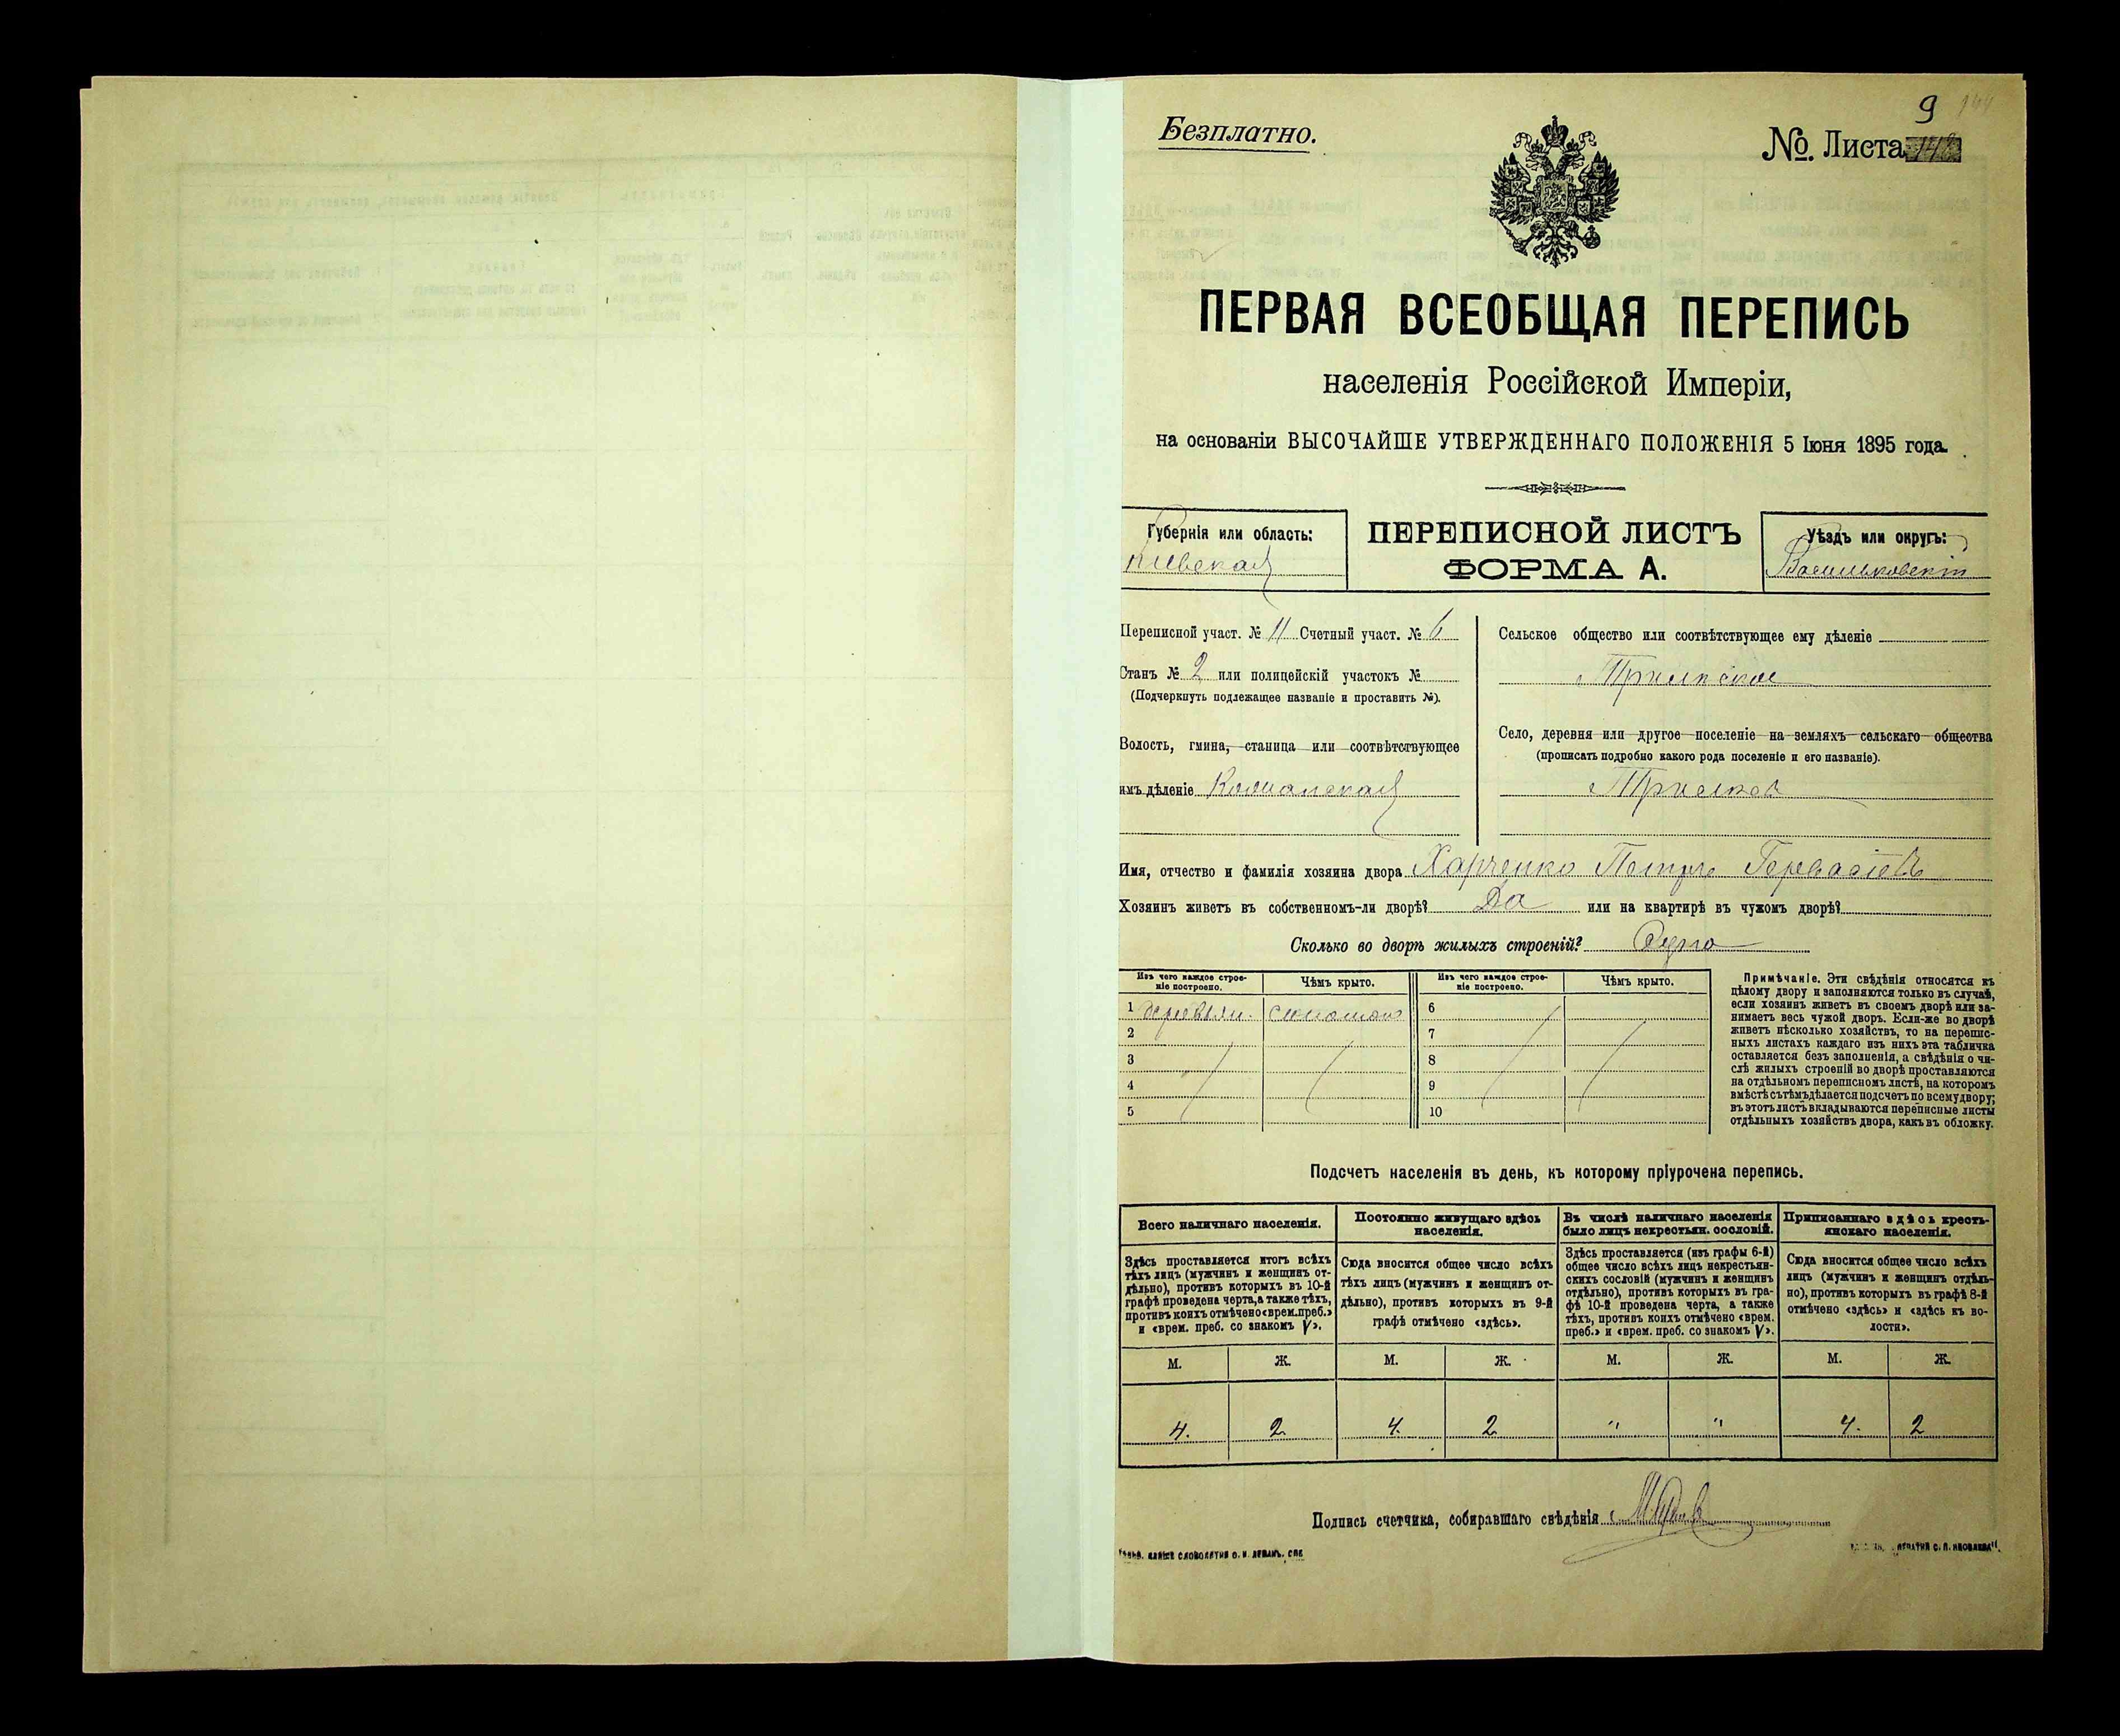 9
Безплатно.
№ Листа
ПЕРВАЯ ВСЕОБЩАЯ ПЕРЕПИСЬ
населенія Россійской Имперіи,
на основаніи ВЫСОЧАЙШЕ УТВЕРЖДЕННАГО ПОЛОЖЕНІЯ 5 Іюня 1895 года.
Губернія или область:
Кіевская
ПЕРЕПИСНОЙ ЛИСТЪ
ФОРМА А.
Уѣздъ или округъ:
Васильковскій
Переписной участ. № 11 Счетный участ. № 6
Станъ № 2 или полицейскій участокъ №
(Подчеркнуть подлежащее названіе и проставить №).
Волость, гмина, станица или соотвѣтствующее
имъ дѣленіе
Сельское общество или соотвѣтствующее ему дѣленіе
Село, деревня или другое поселеніе на земляхъ сельскаго общества
(прописать подробно какого рода поселеніе и его названіе).
Имя, отчество и фамилія хозяина двора Харченко Петръ
Хозяинъ живетъ въ собственномъ-ли дворѣ? Да или на квартирѣ въ чужомъ дворѣ?
Сколько во дворѣ жилыхъ строеній? Одно
Изъ чего каждое строе-
ніе построено.
Чѣмъ крыто.
Изъ чего каждое строе-
ніе построено.
Чѣмъ крыто.
1 деревян. соломою 6
2 7
3 8
4 9
5 10
Примѣчаніе. Эти свѣдѣнія относятся къ
цѣлому двору и заполняются только въ случаѣ,
если хозяинъ живетъ въ своемъ дворѣ или за-
нимаетъ весь чужой дворъ. Если-же во дворѣ
живетъ нѣсколько хозяйствъ, то на перепис-
ныхъ листахъ каждаго изъ нихъ эта табличка
оставляется безъ заполненія, а свѣдѣнія о чи-
слѣ жилыхъ строеній во дворѣ проставляются
на отдѣльномъ переписномъ листѣ, на которомъ
вмѣстѣ съ тѣмъ дѣлается подсчетъ по всему двору;
въ этотъ листъ вкладываются переписные листы
отдѣльныхъ хозяйствъ двора, какъ въ обложку.
Подсчетъ населенія въ день, къ которому пріурочена перепись.
Всего наличнаго населенія.
Здѣсь проставляется итогъ всѣхъ
тѣхъ лицъ (мужчинъ и женщинъ от-
дѣльно), противъ которыхъ въ 10-й
графѣ проведена черта, а также тѣхъ,
противъ коихъ отмѣчено «врем. преб.»
и «врем. преб. со знакомъ V».
Постоянно живущаго здѣсь
населенія.
Сюда вносится общее число всѣхъ
тѣхъ лицъ (мужчинъ и женщинъ от-
дѣльно), противъ которыхъ въ 9-й
графѣ отмѣчено «здѣсь».
Въ числѣ наличнаго населенія
было лицъ некрестьян. сословій.
Здѣсь проставляется (изъ графы 6-й)
общее число всѣхъ лицъ некрестьян-
скихъ сословій (мужчинъ и женщинъ
отдѣльно), противъ которыхъ въ гра-
фѣ 10-й проведена черта, а также
тѣхъ, противъ коихъ отмѣчено «врем.
преб.» и «врем. преб. со знакомъ V».
Приписаннаго здѣсь кресть-
янскаго населенія.
Сюда вносится общее число всѣхъ
лицъ (мужчинъ и женщинъ отдѣль-
но), противъ которыхъ въ графѣ 8-й
отмѣчено «здѣсь» и «здѣсь къ во-
лости».
М. Ж. М. Ж. М. Ж. М. Ж.
4. 2 4. 2 " " 4. 2
Подпись счетчика, собиравшаго свѣдѣнія